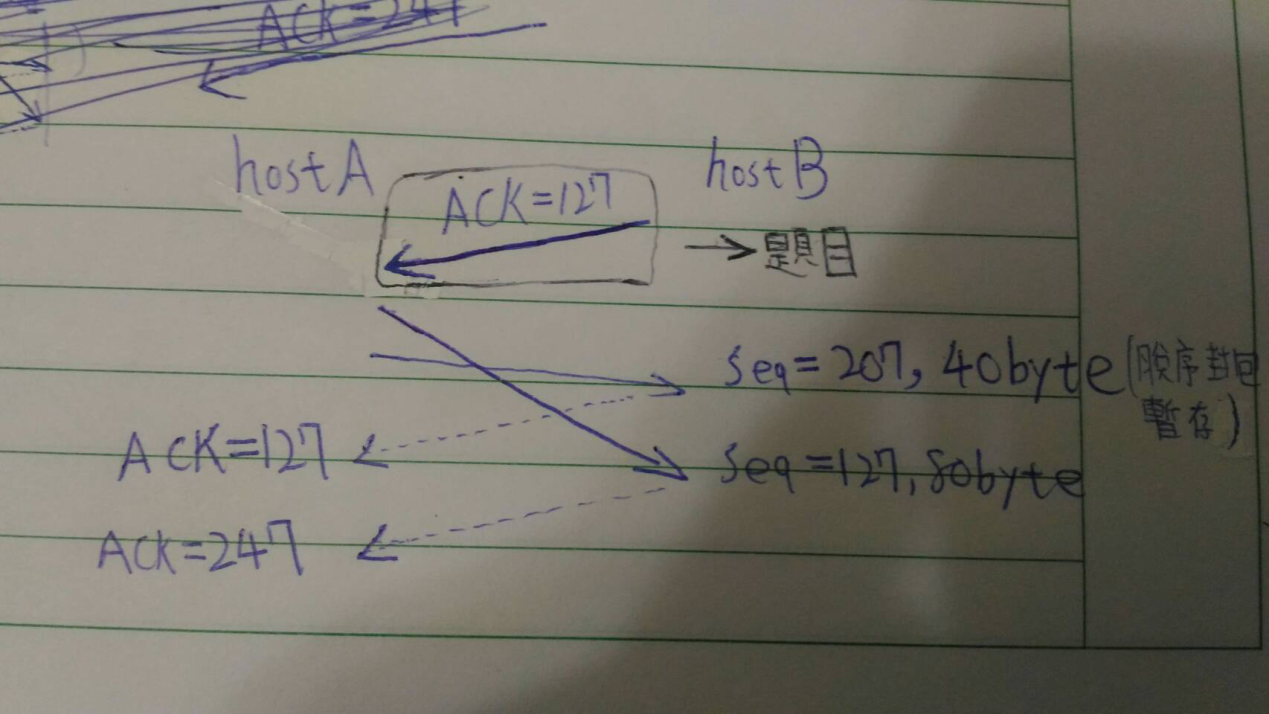 ACK=247
hostA
hostB
ACK=127
→題目
seq=207, 40byte(脫序封包
暫存)
ACK=127
seq=127, 80byte
ACK=247